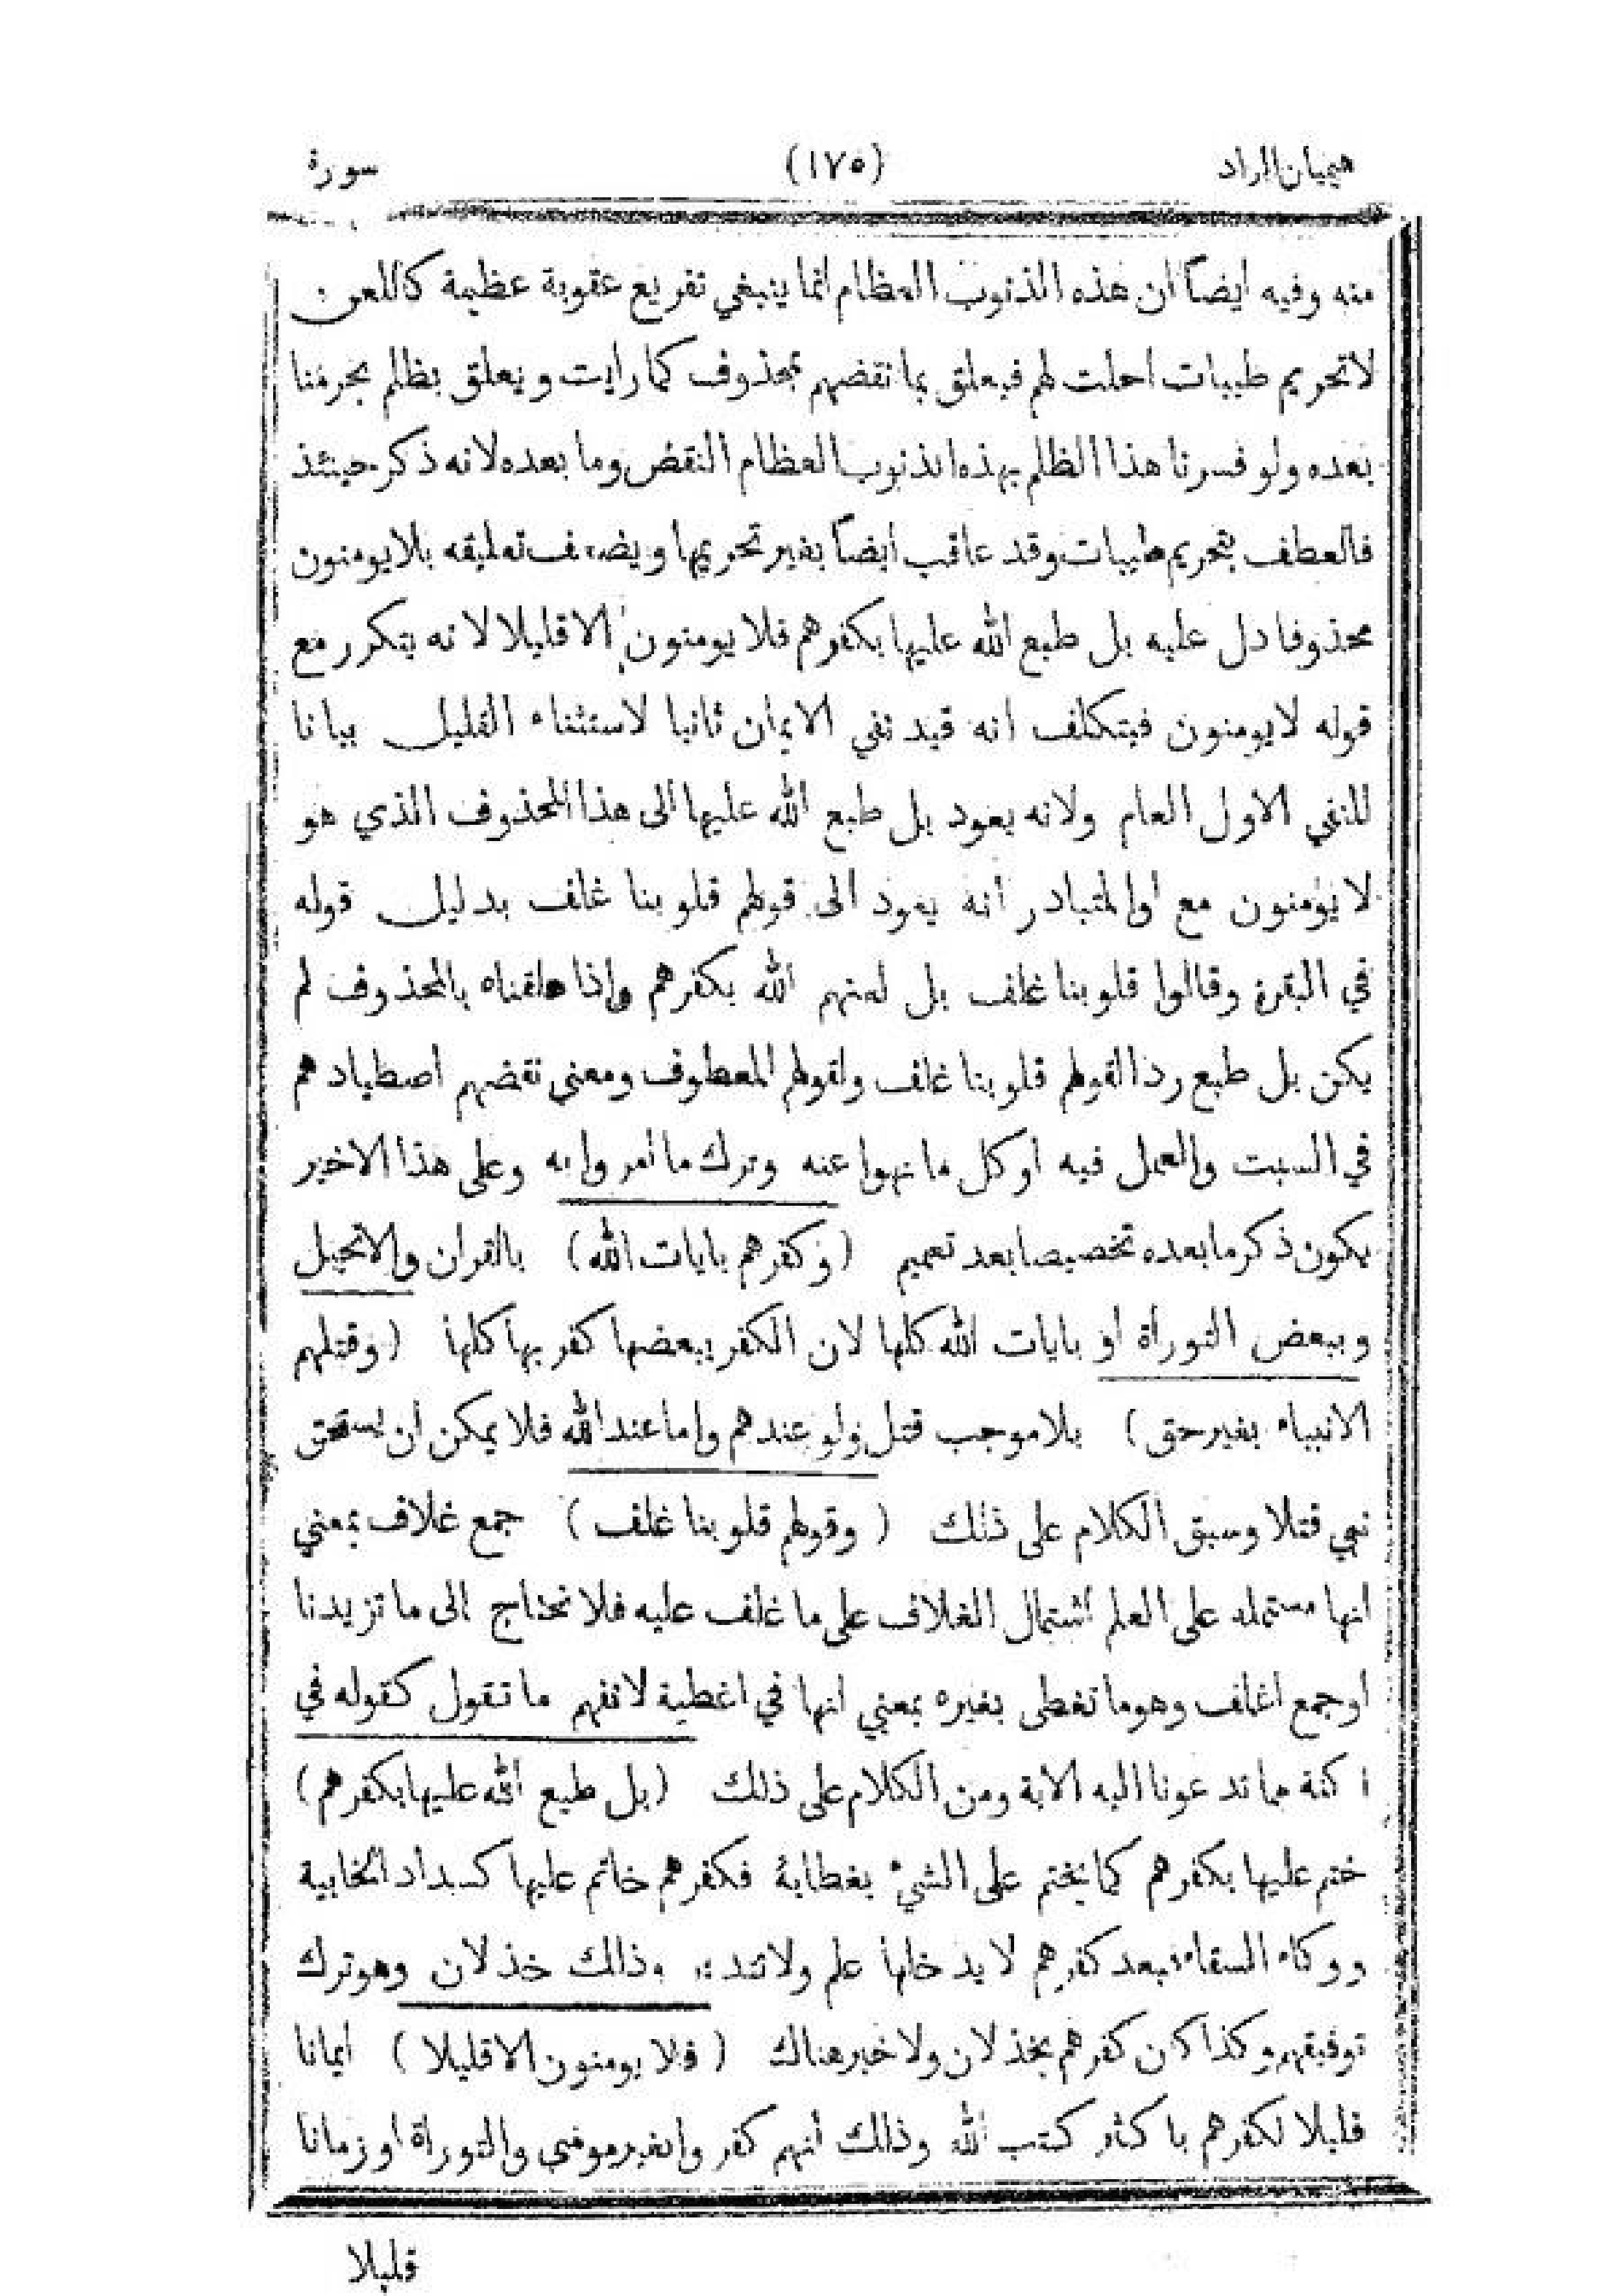 هيميان الزاد (١٧٥) سورة
منه وفيه ايضاً ان هذه الذنوب العظام انما ينبغي تفريع عقوبة عظيمة كاللعن
لا تحريم طيبات احلت لهم فيعلق بما نقضهم بمحذوف كما رايت ويعلق بظلم بحرمنا
بعده ولو فسرنا هذا الظلم بهذه الذنوب العظام النقض وما بعده لانه ذكر حينئذ
فالعطف بتحريم طيبات وقد عاقب ايضاً بغير تحريمها ويضعف تعليقه بلا يومنون
محذوفا دل عليه بل طبع الله عليها بكفرهم فلا يومنون الا قليلا لانه يتكرر مع
قوله لا يومنون فيتكلف انه قيد نفي الايمان ثانيا لاستثناء القليل بيانا
للنفي الاول العام ولانه يعود بل طبع الله عليها الى هذا المحذوف الذي هو
لا يؤمنون مع اوا لمتبادر أنه يعود الى قولهم قلوبنا غلف بدليل قوله
في البقرة وقالوا قلوبنا غلف بل لعنهم الله بكفرهم واذا علقناه بالمحذوف لم
يكن بل طبع ردا لقولهم قلوبنا غلف ولقولهم المعطوف ومعنى نقضهم اصطيادهم
في السبت والعمل فيه او كل ما نهوا عنه وترك ما أمروا به وعلى هذا الاخير
يكون ذكر ما بعده تخصيصا بعد تعميم ( وكفرهم بايات الله ) بالقران والانجيل
وببعض التوراة او بايات الله كلها لان الكفر ببعضها كفر بها كلها ( وقتلهم
الانبياء بغير حق ) بلا موجب قتل ولو عندهم واما عند الله فلا يمكن ان يستحق
نبي قتلا وسبق الكلام على ذلك ( وقولهم قلوبنا غلف ) جمع غلاف بمعنى
انها مستمله على العلم اشتمال الغلاف على ما غلف عليه فلا نحتاج الى ما تزيدنا
او جمع اغلف وهو ما تغطى بغيره بمعنى انها في اغطية لا نفهم ما تقول كقوله في
اكنة مما تدعونا اليه الاية ومن الكلام على ذلك ( بل طبع الله عليها بكفرهم )
ختم عليها بكفرهم كما يختم على الشيء بغطابة فكفرهم خاتم عليها كسداد الخابية
ووكاء السقاء فبعد كفرهم لا يدخلها علم ولا تتدبر وذالك خذلان وهو ترك
توفيقهم وكذا كان كفرهم بخذلان ولا خير هناك ( فلا يومنون الا قليلا ) ايمانا
قليلا لكفرهم باكثر كتب الله وذالك أنهم كفروا بغير موسى والتوراة او زمانا
قليلا